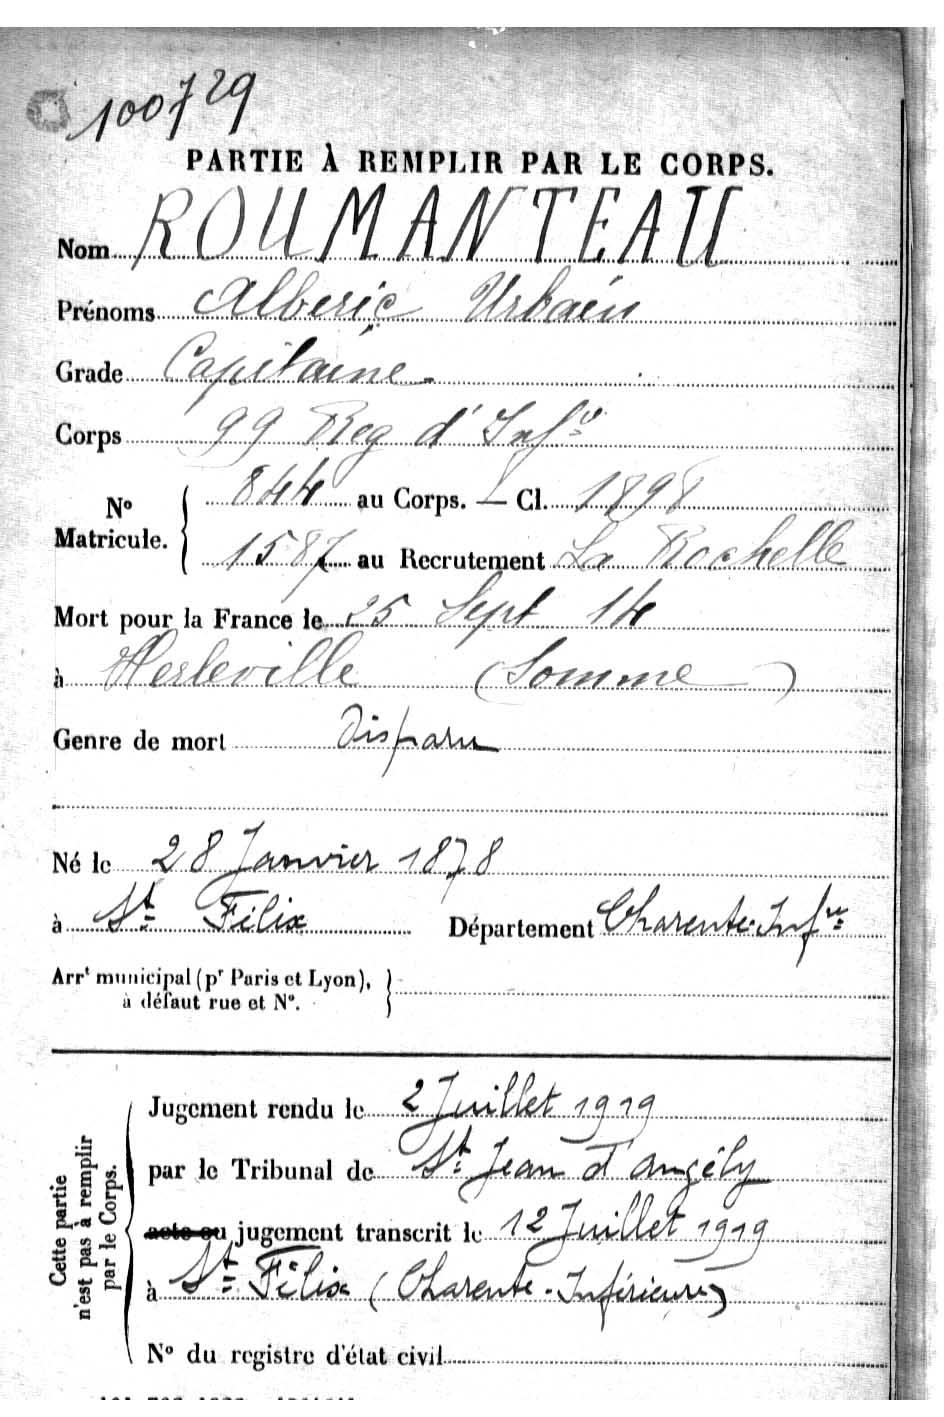 100729
PARTIE À REMPLIR PAR LE CORPS.
Nom ROUMANTEAU
Prénoms Alberic Urbain
Grade Capitaine
Corps 99 Reg d'Infie
N° Matricule. 844 au Corps. — Cl. 1898
1587 au Recrutement La Rochelle
Mort pour la France le 25 Sept 14
à Herleville (Somme)
Genre de mort Disparu
Né le 28 Janvier 1878
à St Félix Département Charente-Infre
Arrt municipal (pr Paris et Lyon),
à défaut rue et N°.
Cette partie n'est pas à remplir par le Corps.
Jugement rendu le 2 Juillet 1919
par le Tribunal de St Jean d'Angély
acte ou jugement transcrit le 12 Juillet 1919
à St Félix (Charente-Inférieure)
N° du registre d'état civil